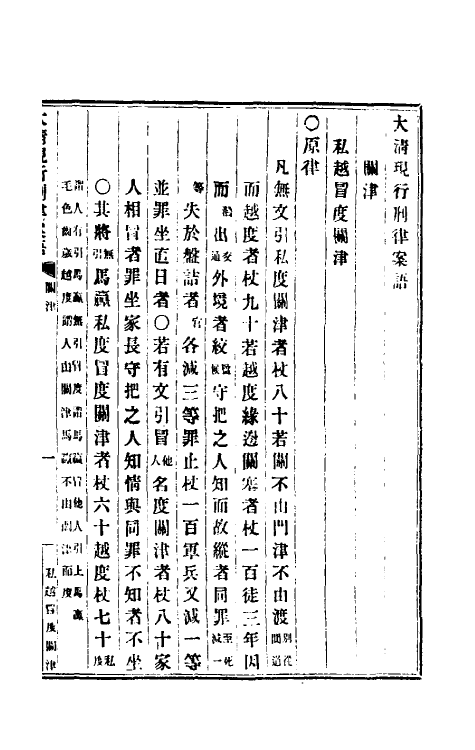 大清現行刑律案語
關津
私越冒度關津
〇原律
凡無文引私度關津者杖八十若關不由門津不由渡別從間道
而越度者杖九十若越度緣邊關塞者杖一百徒三年因
而越出交通外境者絞監候守把之人知而故縱者同罪至死減一
等失於盤詰者官各減三等罪止杖一百軍兵又減一等
並罪坐直日者〇若有文引冒他人名度關津者杖八十家
人相冒者罪坐家長守把之人知情與同罪不知者不坐
〇其將無引馬驘私度冒度關津者杖六十越度杖七十私度
謂人有引馬驘無引冒度謂馬驘冒他人引上馬驘
毛色齒歲越度謂人由關津馬驘不由關津而度
大清現行刑律案語 關津 一 私越冒度關津